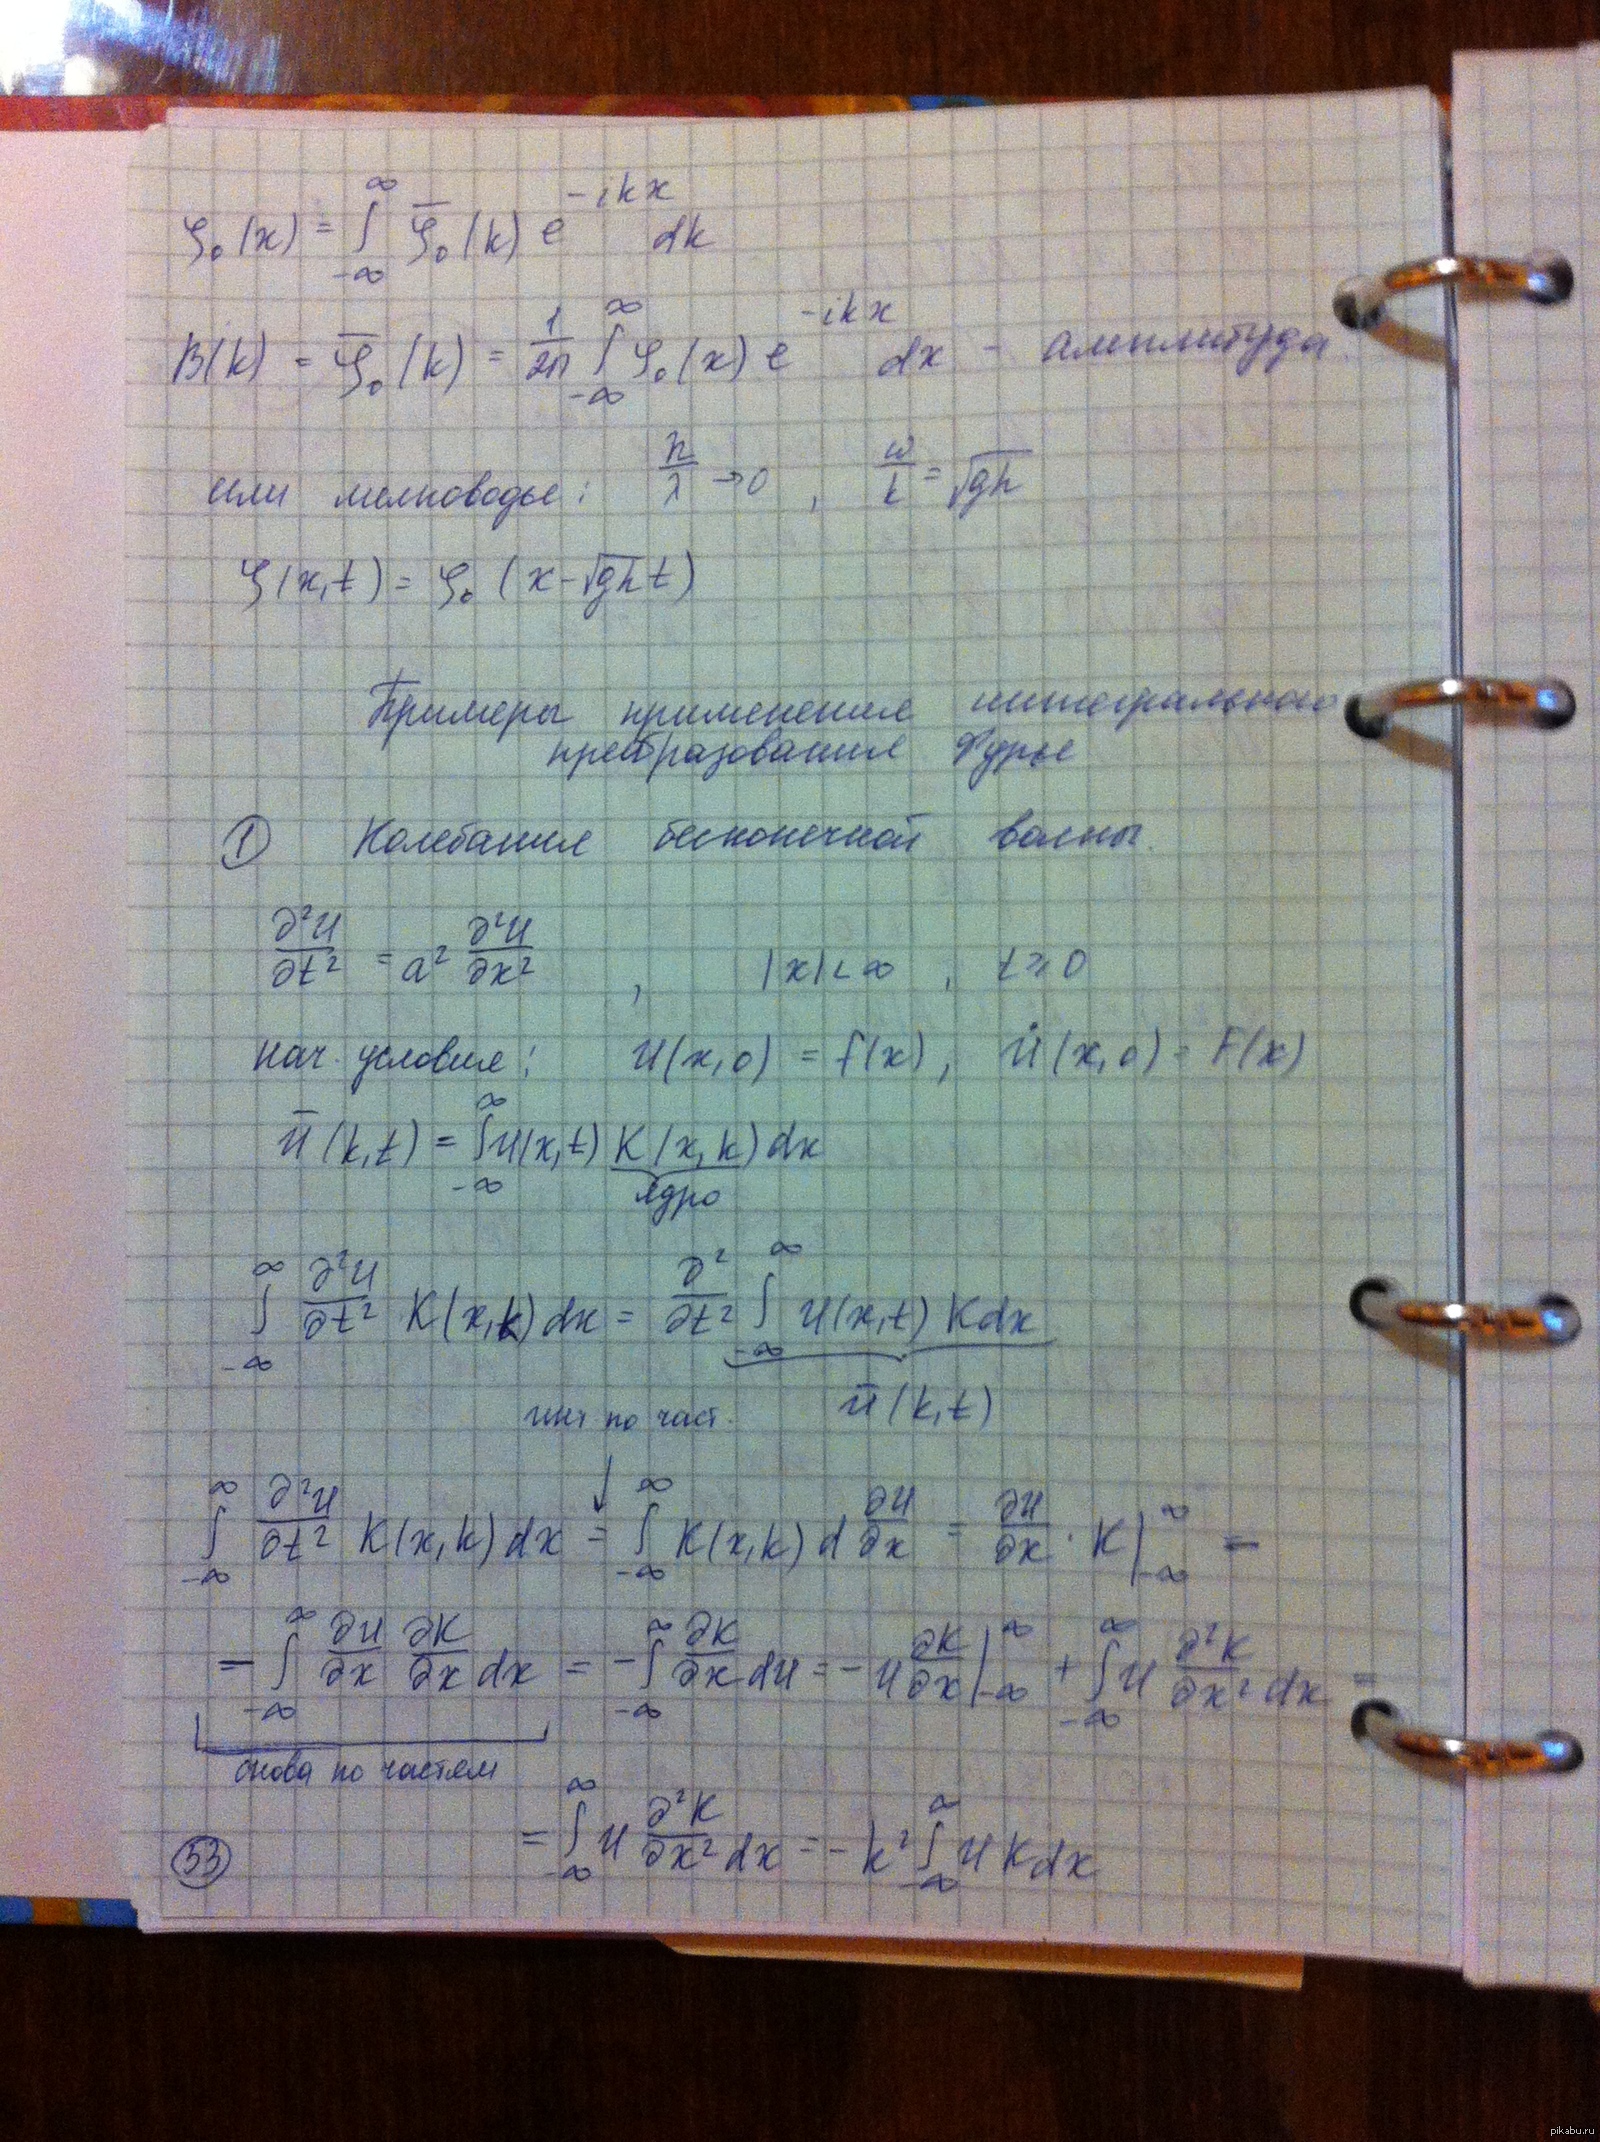 ζ₀(x) = ∫_{-∞}^{∞} ζ̄₀(k) e^{-ikx} dk
B(k) = ζ̄₀(k) = 1/2π ∫_{-∞}^{∞} ζ₀(x) e^{-ikx} dx - амплитуда.
или мелководье: h/λ → 0 , ω/k = √gh
ζ(x,t) = ζ₀ (x - √gh t)
Примеры применения интегрального
преобразования Фурье
① Колебания бесконечной волны.
∂²U/∂t² = a² ∂²U/∂x² , |x| < ∞ , t ≥ 0
нач. условия: U(x,0) = f(x), U̇(x,0) = F(x)
Ū(k,t) = ∫_{-∞}^{∞} U(x,t) K(x,k) dx
ядро
∫_{-∞}^{∞} ∂²U/∂t² K(x,k) dx = ∂²/∂t² ∫_{-∞}^{∞} U(x,t) K dx
Ū(k,t)
инт по част.
↓
∫_{-∞}^{∞} ∂²U/∂t² K(x,k) dx = ∫_{-∞}^{∞} K(x,k) d ∂U/∂x = ∂U/∂x · K|_{-∞}^{∞} =
- ∫_{-∞}^{∞} ∂U/∂x ∂K/∂x dx = - ∫_{-∞}^{∞} ∂K/∂x dU = - U ∂K/∂x|_{-∞}^{∞} + ∫_{-∞}^{∞} U ∂²K/∂x² dx =
снова по частям
= ∫_{-∞}^{∞} U ∂²K/∂x² dx = - k² ∫_{-∞}^{∞} U K dx
53
pikabu.ru